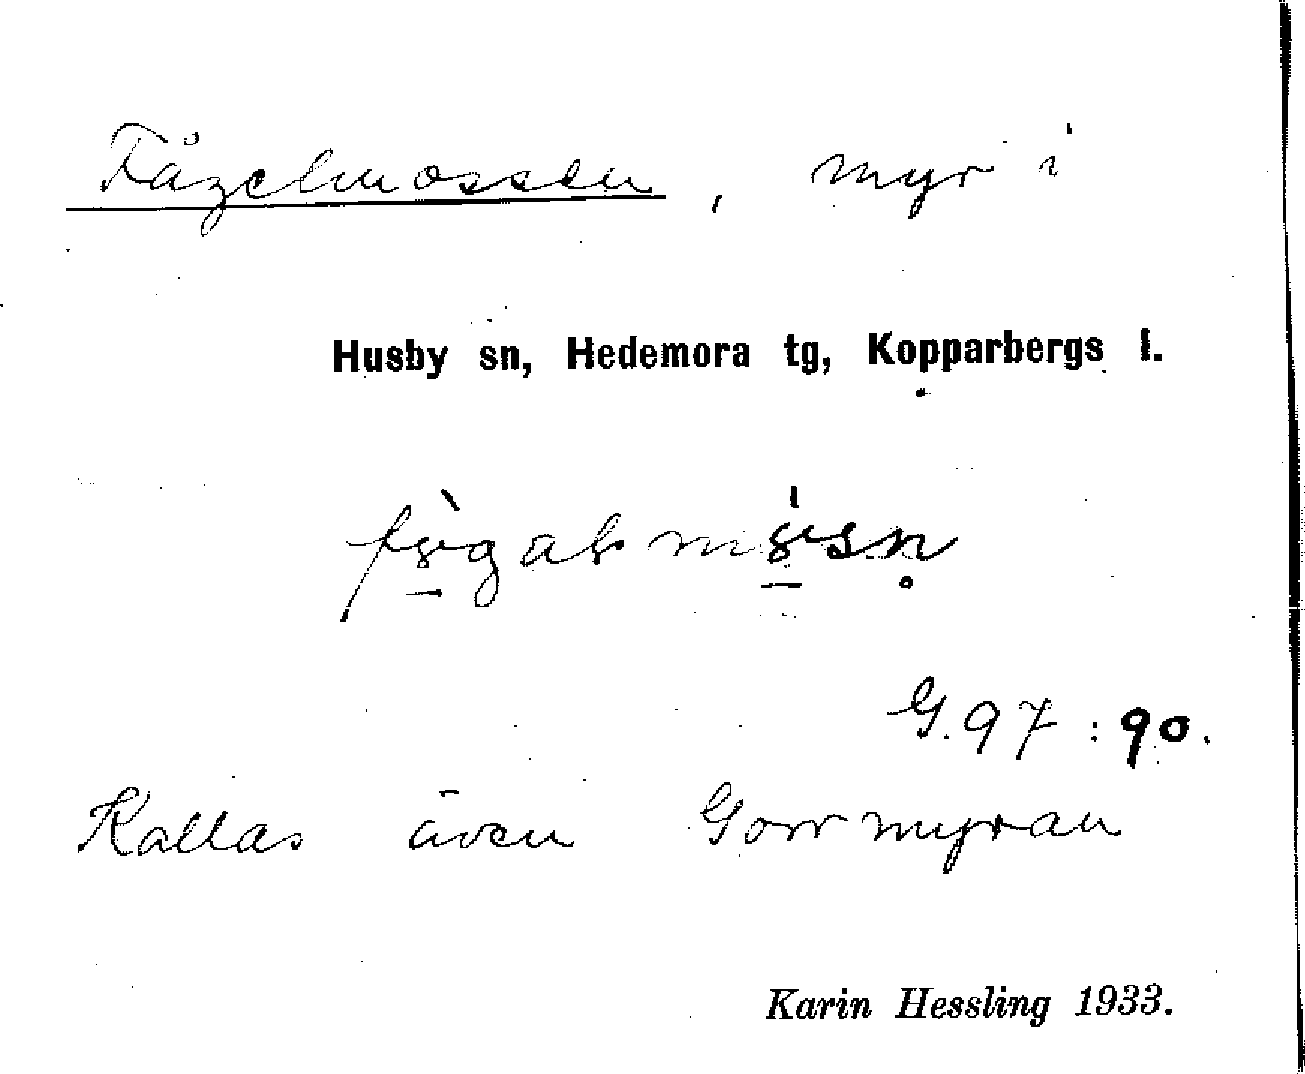 Fågelmossen, myr i
Husby sn, Hedemora tg, Kopparbergs l.
G. 97 : 90.
Kallas även Gorrmyran
Karin Hessling 1933.